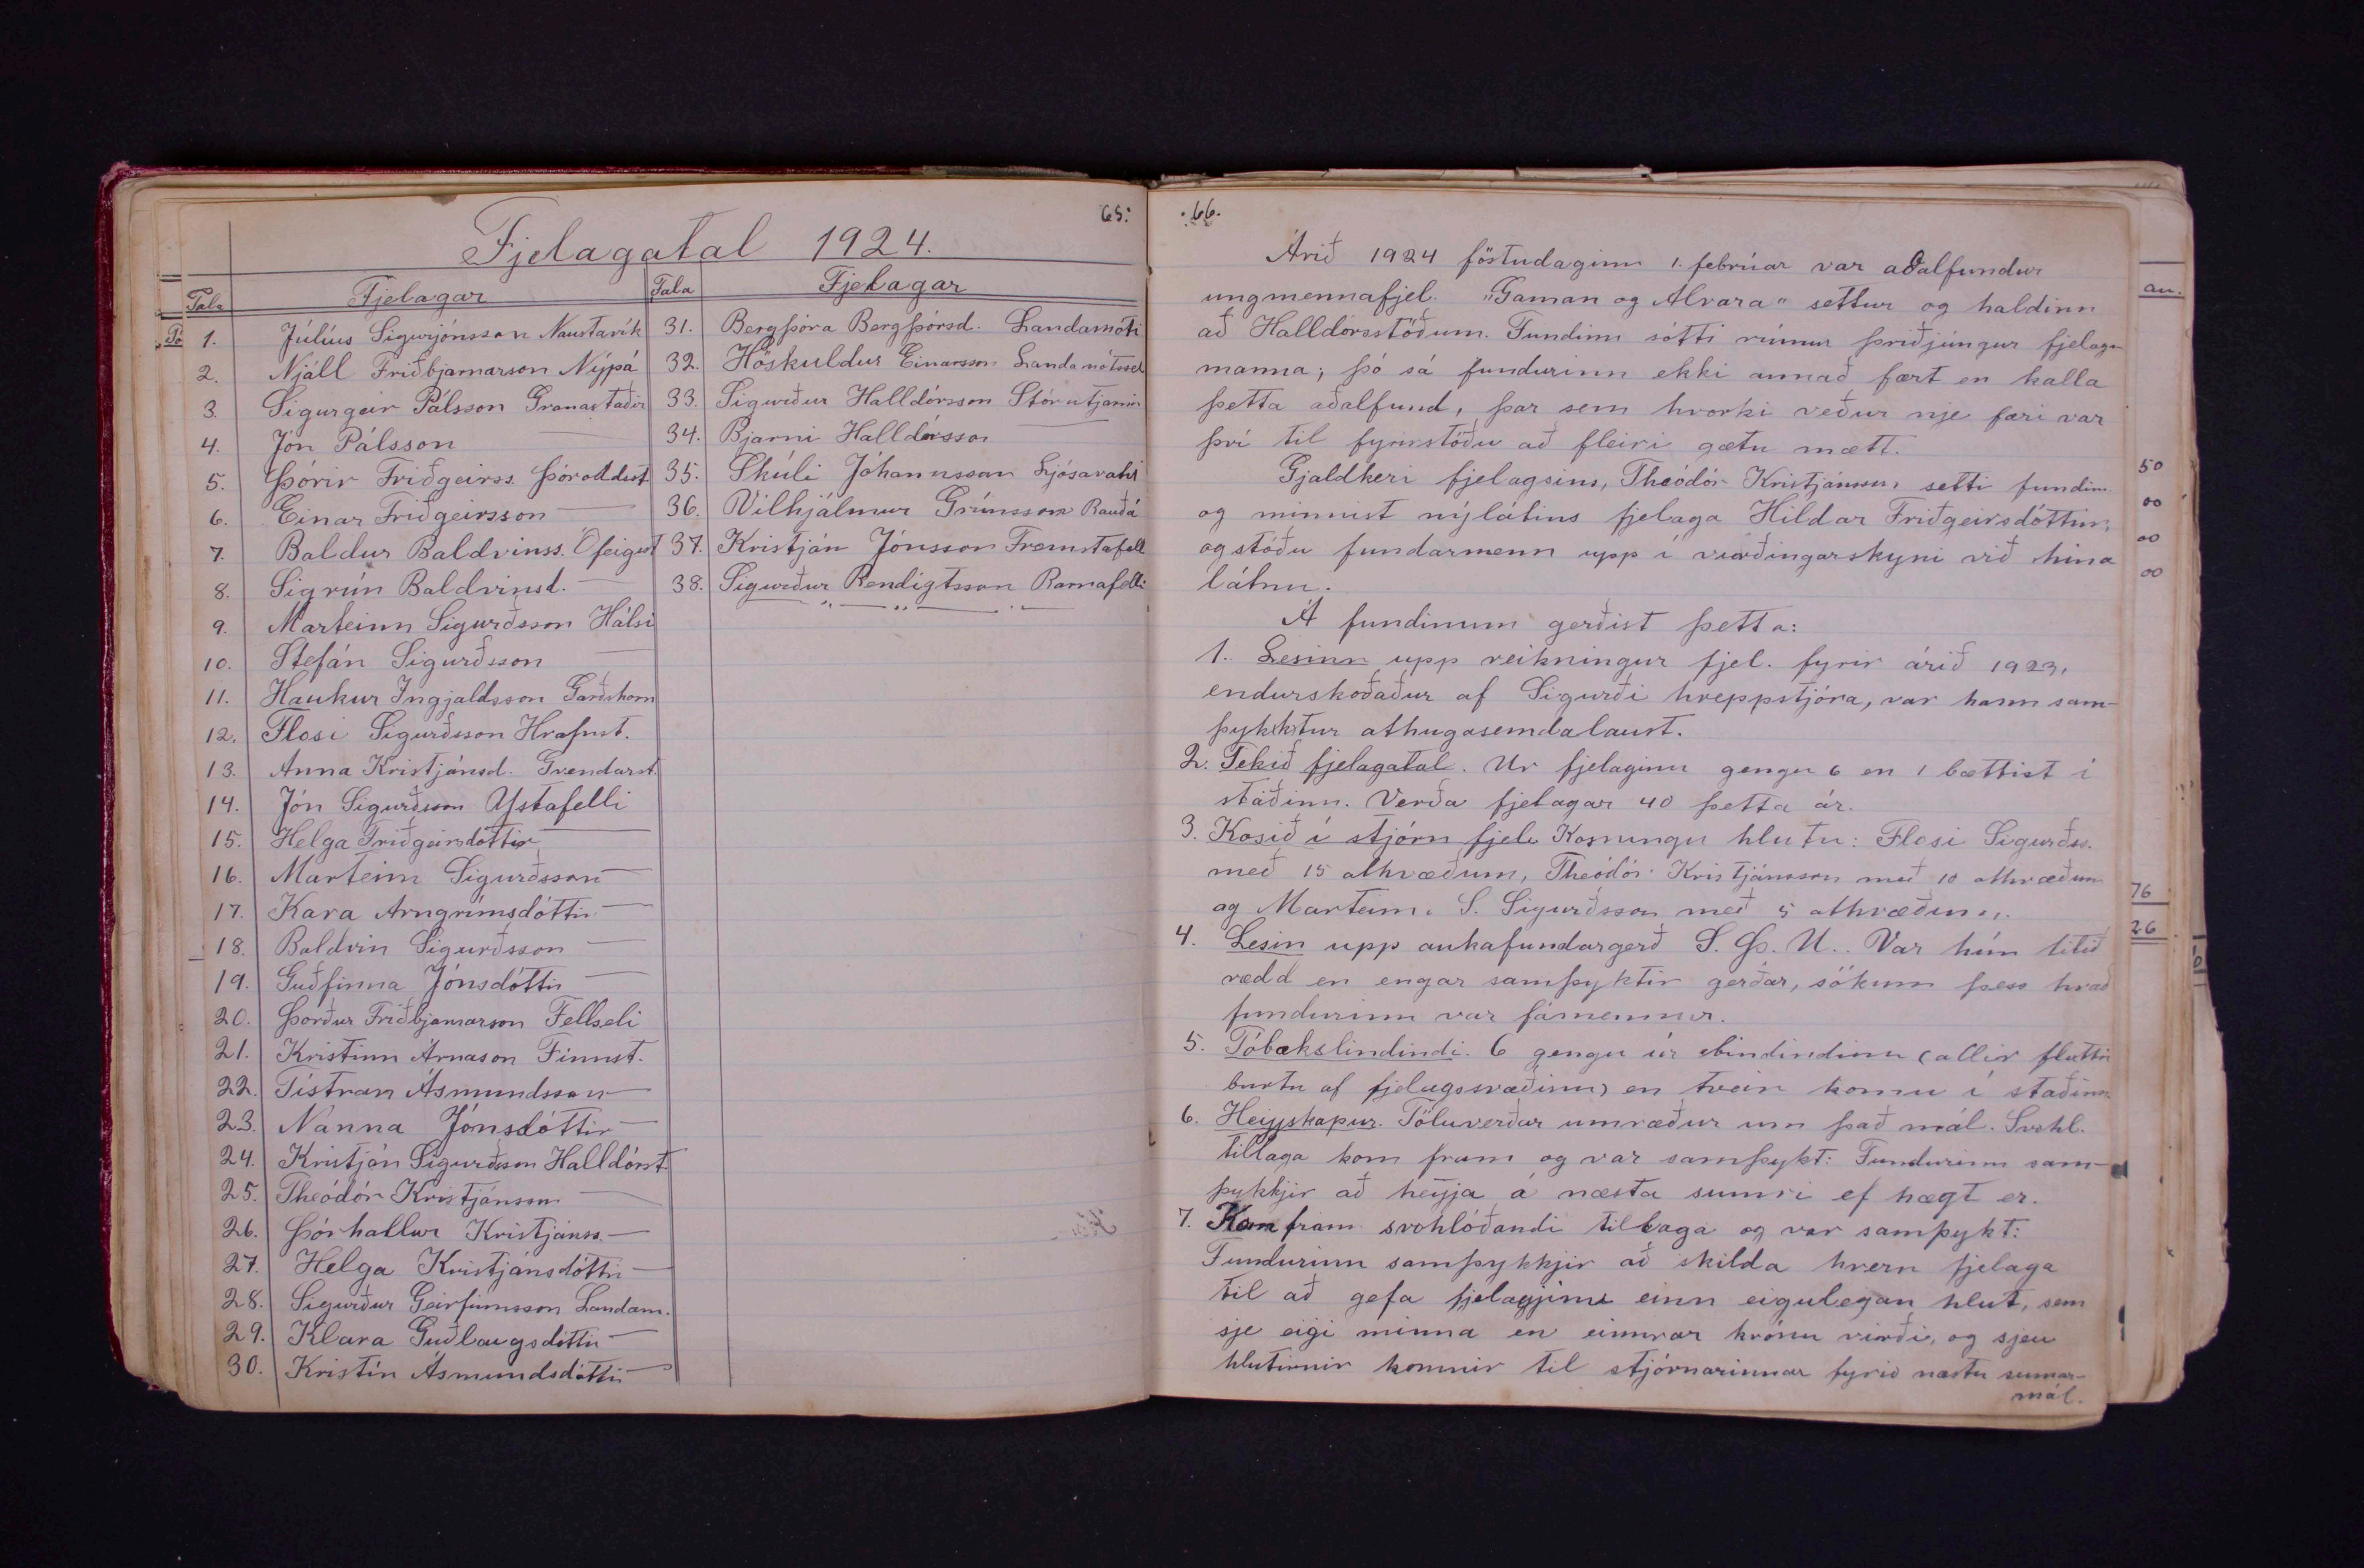 65.
Fjelagatal 1924.
Tala Fjelagar Tala Fjelagar
1. Júlíus Sigurjónsson Naustavík
2. Njáll Friðbjarnarson Nýpá
3. Sigurgeir Pálsson Granastaðir
4. Jón Pálsson —
5. Þórir Friðgeirss. Þóroddsst.
6. Einar Friðgeirsson —
7. Baldur Baldvinss. Ófeigsst
8. Sigrún Baldvinsd. —
9. Marteinn Sigurðsson Hálsi
10. Stefán Sigurðsson —
11. Haukur Ingjaldsson Garðshorn
12. Flosi Sigurðsson Hrafnst.
13. Anna Kristjánsd. Grendarst.
14. Jón Sigurðsson Ystafelli
15. Helga Friðgeirsdóttir —
16. Marteinn Sigurðsson —
17. Kara Arngrímsdóttir —
18. Baldvin Sigurðsson —
19. Guðfinna Jónsdóttir —
20. Þorður Friðbjarnarson Fellseli
21. Kristinn Árnason Finnst.
22. Tístram Ásmundsson —
23. Nanna Jónsdóttir —
24. Kristján Sigurðsson Halldórst.
25. Theódór Kristjánsson —
26. Þórhallur Kristjánss. —
27. Helga Kristjánsdóttir —
28. Sigurður Geirfinnsson Landam.
29. Klara Guðlaugsdóttir —
30. Kristín Ásmundsdóttir —
31. Bergþóra Bergþórsd. Landamóti
32. Höskuldur Einarsson Landamótssel
33. Sigurður Halldórsson Stórutjarnir
34. Bjarni Halldórsson —
35. Skúli Jóhannsson Ljósavatni
36. Vilhjálmur Grímsson Rauðá
37. Kristján Jónsson Fremstafell
38. Sigurður Bendigtsson Barnafelli
.66.
Árið 1924 föstudaginn 1. febrúar var aðalfundur
ungmennafjel. "Gaman og Alvara" settur og haldinn
að Halldórsstöðum. Fundinn sótti rúmur þriðjúngur fjelags
manna; þó sá fundurinn ekki annað fært en kalla
þetta aðalfund, þar sem hvorki veður nje færi var
því til fyrirstöðu að fleiri gætu mætt.
Gjaldkeri fjelagsins, Theódór Kristjánsson, setti fundinn
og minnist nýlátins fjelaga Hildar Friðgeirsdóttir,
og stóðu fundarmenn upp í virðingarskyni við hina
látnu.
Á fundinum gerðist þetta:
1. Lesinn upp reikningur fjel. fyrir árið 1923,
endurskoðaður af Sigurði hreppstjóra, var hann sam-
þykktur athugasemdalaust.
2. Tekið fjelagatal. Ur fjelaginu gengu 6 en 1 bættist í
staðinn. Verða fjelagar 40 þetta ár.
3. Kosið í stjórn fjel. Kosningu hlutu: Flosi Sigurðss.
með 15 atkvæðum, Theódór Kristjánsson með 10 atkvæðum
og Marteinn S. Sigurðsson með 5 atkvæðum.
4. Lesin upp aukafundargerð S. Þ. U.. Var hún litið
rædd en engar samþyktir gerðar, sökum þess hvað
fundurinn var fámennur.
5. Tóbakslindindi. 6 gengu úr bindindinu (allir fluttir
burtu af fjelagssvæðinu) en tveir komu í staðinn
6. Heyskapur. Töluverðar umræður um það mál. Svohl.
tillaga kom fram og var samþykt: Fundurinn sam-
þykkjir að heyja á næsta sumri ef hægt er.
7. Kom fram svohlóðandi tillaga og var samþykt:
Fundurinn samþykkjir að skilda hvern fjelaga
til að gefa fjelagjinu einn eigulegan hlut, sem
sje eigi minna en einnrar krónu virði, og sjeu
hlutirnir komnir til stjórnarinnar fyrir næstu sumar-
mál.
au.
50
00
00
00
76
26